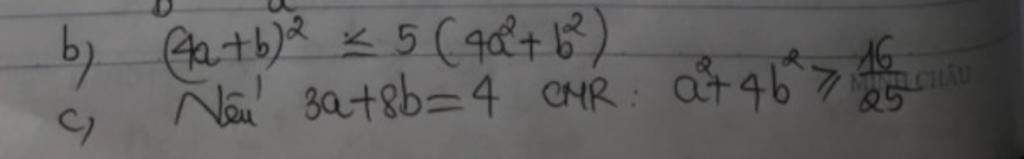 b) (4a+b)² ≤ 5(4a²+b²)
c, Nếu 3a+8b=4 CMR: a²+4b² ≥ 16/25
MINH CHÂU